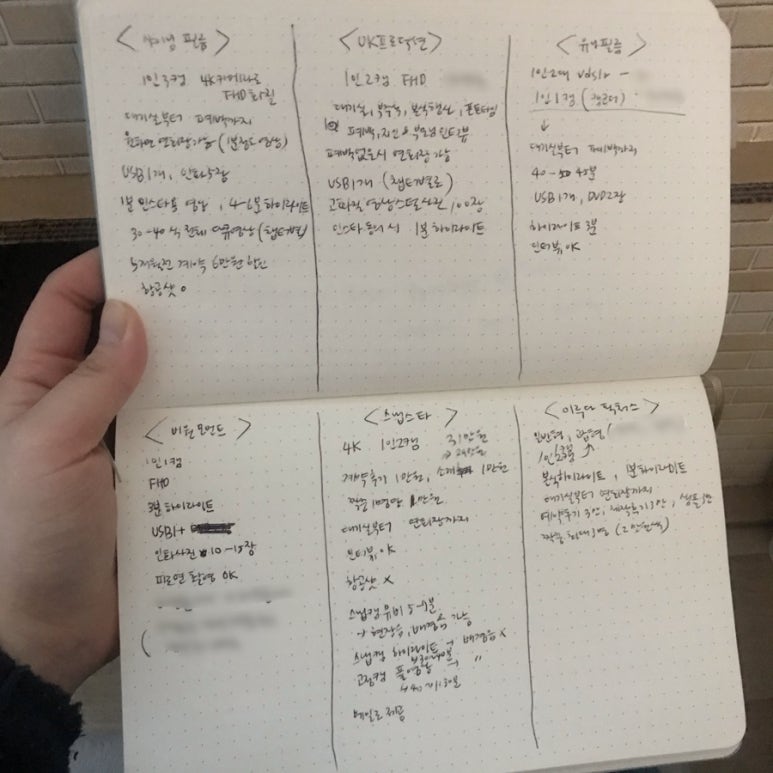 <샤이닝 필름>
1인 3캠 4K카메라로
FHD촬영
대기실부터 폐백까지
원하면 연회장가능 (1분정도 영상)
USB1개, 인화5장
1분 인스타용 영상, 4-6분 하이라이트
30-40 식 전체 다큐영상 (챕터별)
계약 6만원 할인
항공샷 O
<UK프로덕션>
1인 2캠 FHD
대기실, 본식행진, 포토타임
폐백, 지인 & 부모님 인터뷰
폐백없을시 연회장가능
USB1개 (챕터별로)
고화질 영상스틸사진 100장
인스타 동의시 1분 하이라이트
<유나필름>
1인 2대 vdslr -
1인 1캠 (
↓
대기실부터 폐백까지
40 - 45분
USB1개, DVD2장
하이라이트 3분
인터뷰 OK
<비원모먼트>
1인 1캠
FHD
3분 하이라이트
USB1+
인화사진 10-15장
피로연 촬영 OK
(
<스냅스타>
4K 1인2캠 31만원
→ 29만원
계약후기 1만원, 소개 1만원
짝꿍 1명당 1만원
대기실부터 연회장까지
인터뷰 OK
항공샷 X
스냅캠 무비 5-9분
→ 현장음, 배경음 가능
스냅캠 하이라이트 → 배경음 X
고정캠 풀영상 → "
메일로 제공
<이루다 픽쳐스>
일반형, 고급형 /
1인2캠
본식하이라이트, 1분하이라이트
대기실부터 연회장까지
예약후기 3만, 촬영후기 3만, 샘플
짝꿍 최대 3명 (2만원씩)